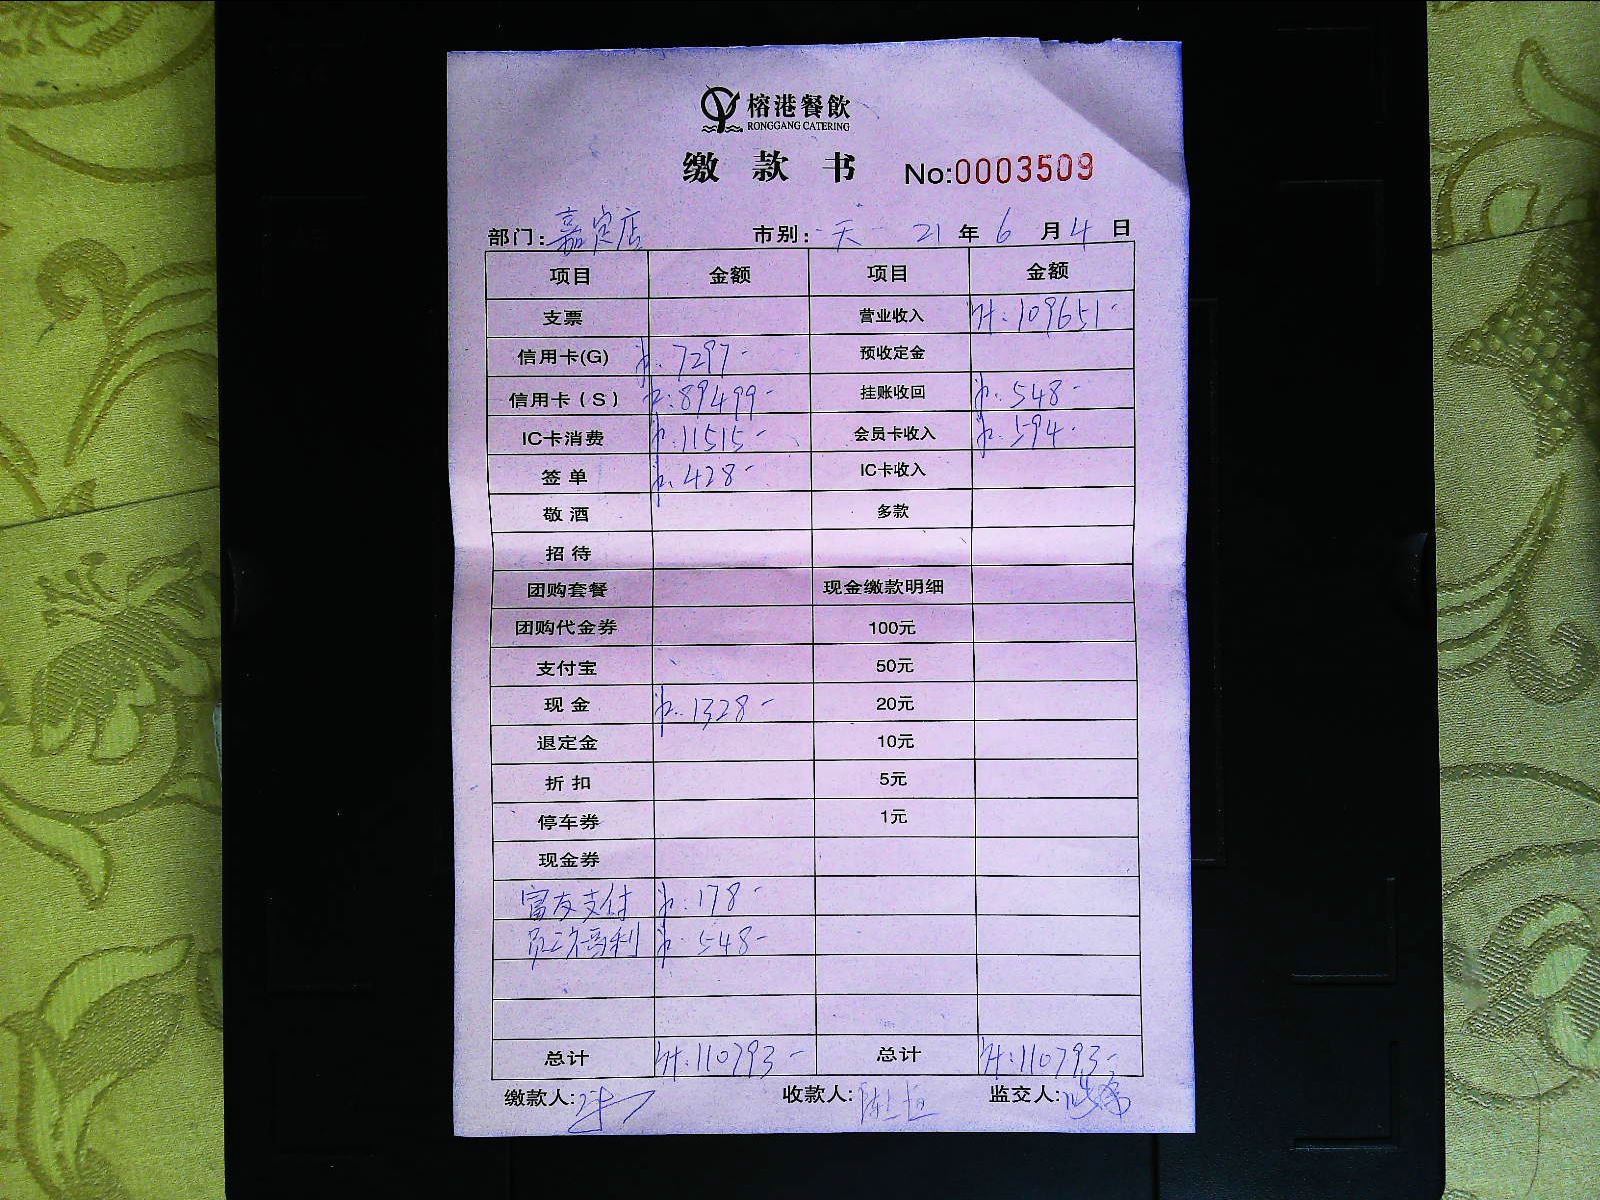 榕港餐飲
RONGGANG CATERING
缴款书 No:0003509
部门:嘉定店 市别:天 21年6月4日
项目 金额 项目 金额
支票 营业收入 计:109651-
信用卡(G) 7297- 预收定金
信用卡(S) :89499- 挂账收回 :548-
IC卡消费 :11515- 会员卡收入 :594-
签单 :428- IC卡收入
敬酒 多款
招待
团购套餐 现金缴款明细
团购代金券 100元
支付宝 50元
现金 :1328- 20元
退定金 10元
折扣 5元
停车券 1元
现金券
富友支付 :178-
员工福利 :548-
总计 计:110793- 总计 计:110793-
缴款人: 收款人: 监交人: